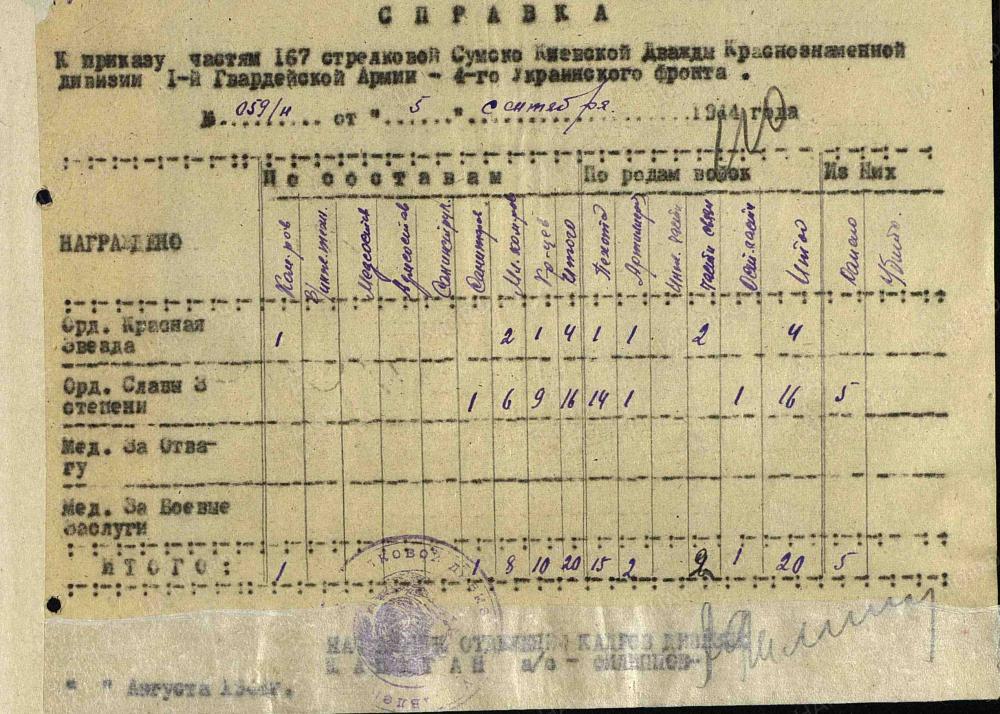 СПРАВКА
К приказу частям 167 стрелковой Сумско Киевской Дважды Краснознаменной
дивизии 1-й Гвардейской Армии - 4-го Украинского фронта .
№ 059/н от " 5 " сентября 1944 года
По составам По родам войск Из Них
НАГРАЖДЕНО Ком-ров Медсостав Санитаров Мл. ком-ров Кр-цев Итого Пехота Части связи Итого
Орд. Красная
Звезда 1 2 1 4 1 1 2 4
Орд. Славы 3
степени 1 6 9 16 14 1 1 16 5
Мед. За Отва-
гу
Мед. За Боевые
Заслуги
ИТОГО: 1 1 8 10 20 15 2 2 1 20 5
НАЧАЛЬНИК ОТДЕЛЕНИЯ КАДРОВ
КАПИТАН а/с -
" " Августа